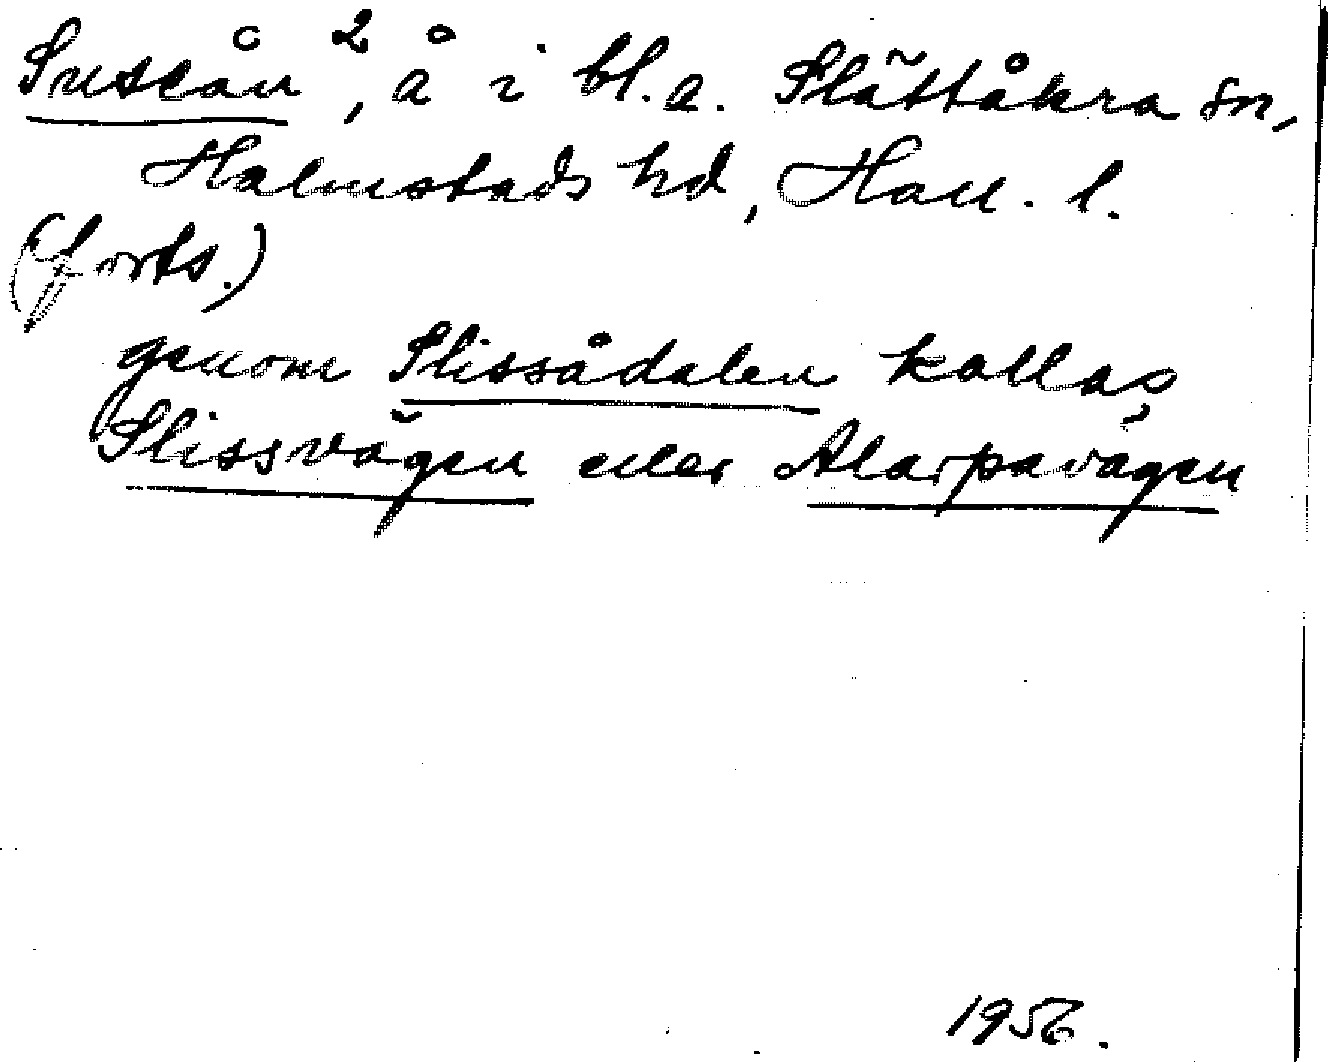 Suseån², å i bl. a. Slättåkra sn,
Halmstads hd, Hall. l.
(forts.)
genom Slissådalen kallas
Slissvägen eller Alarpavägen
1956.